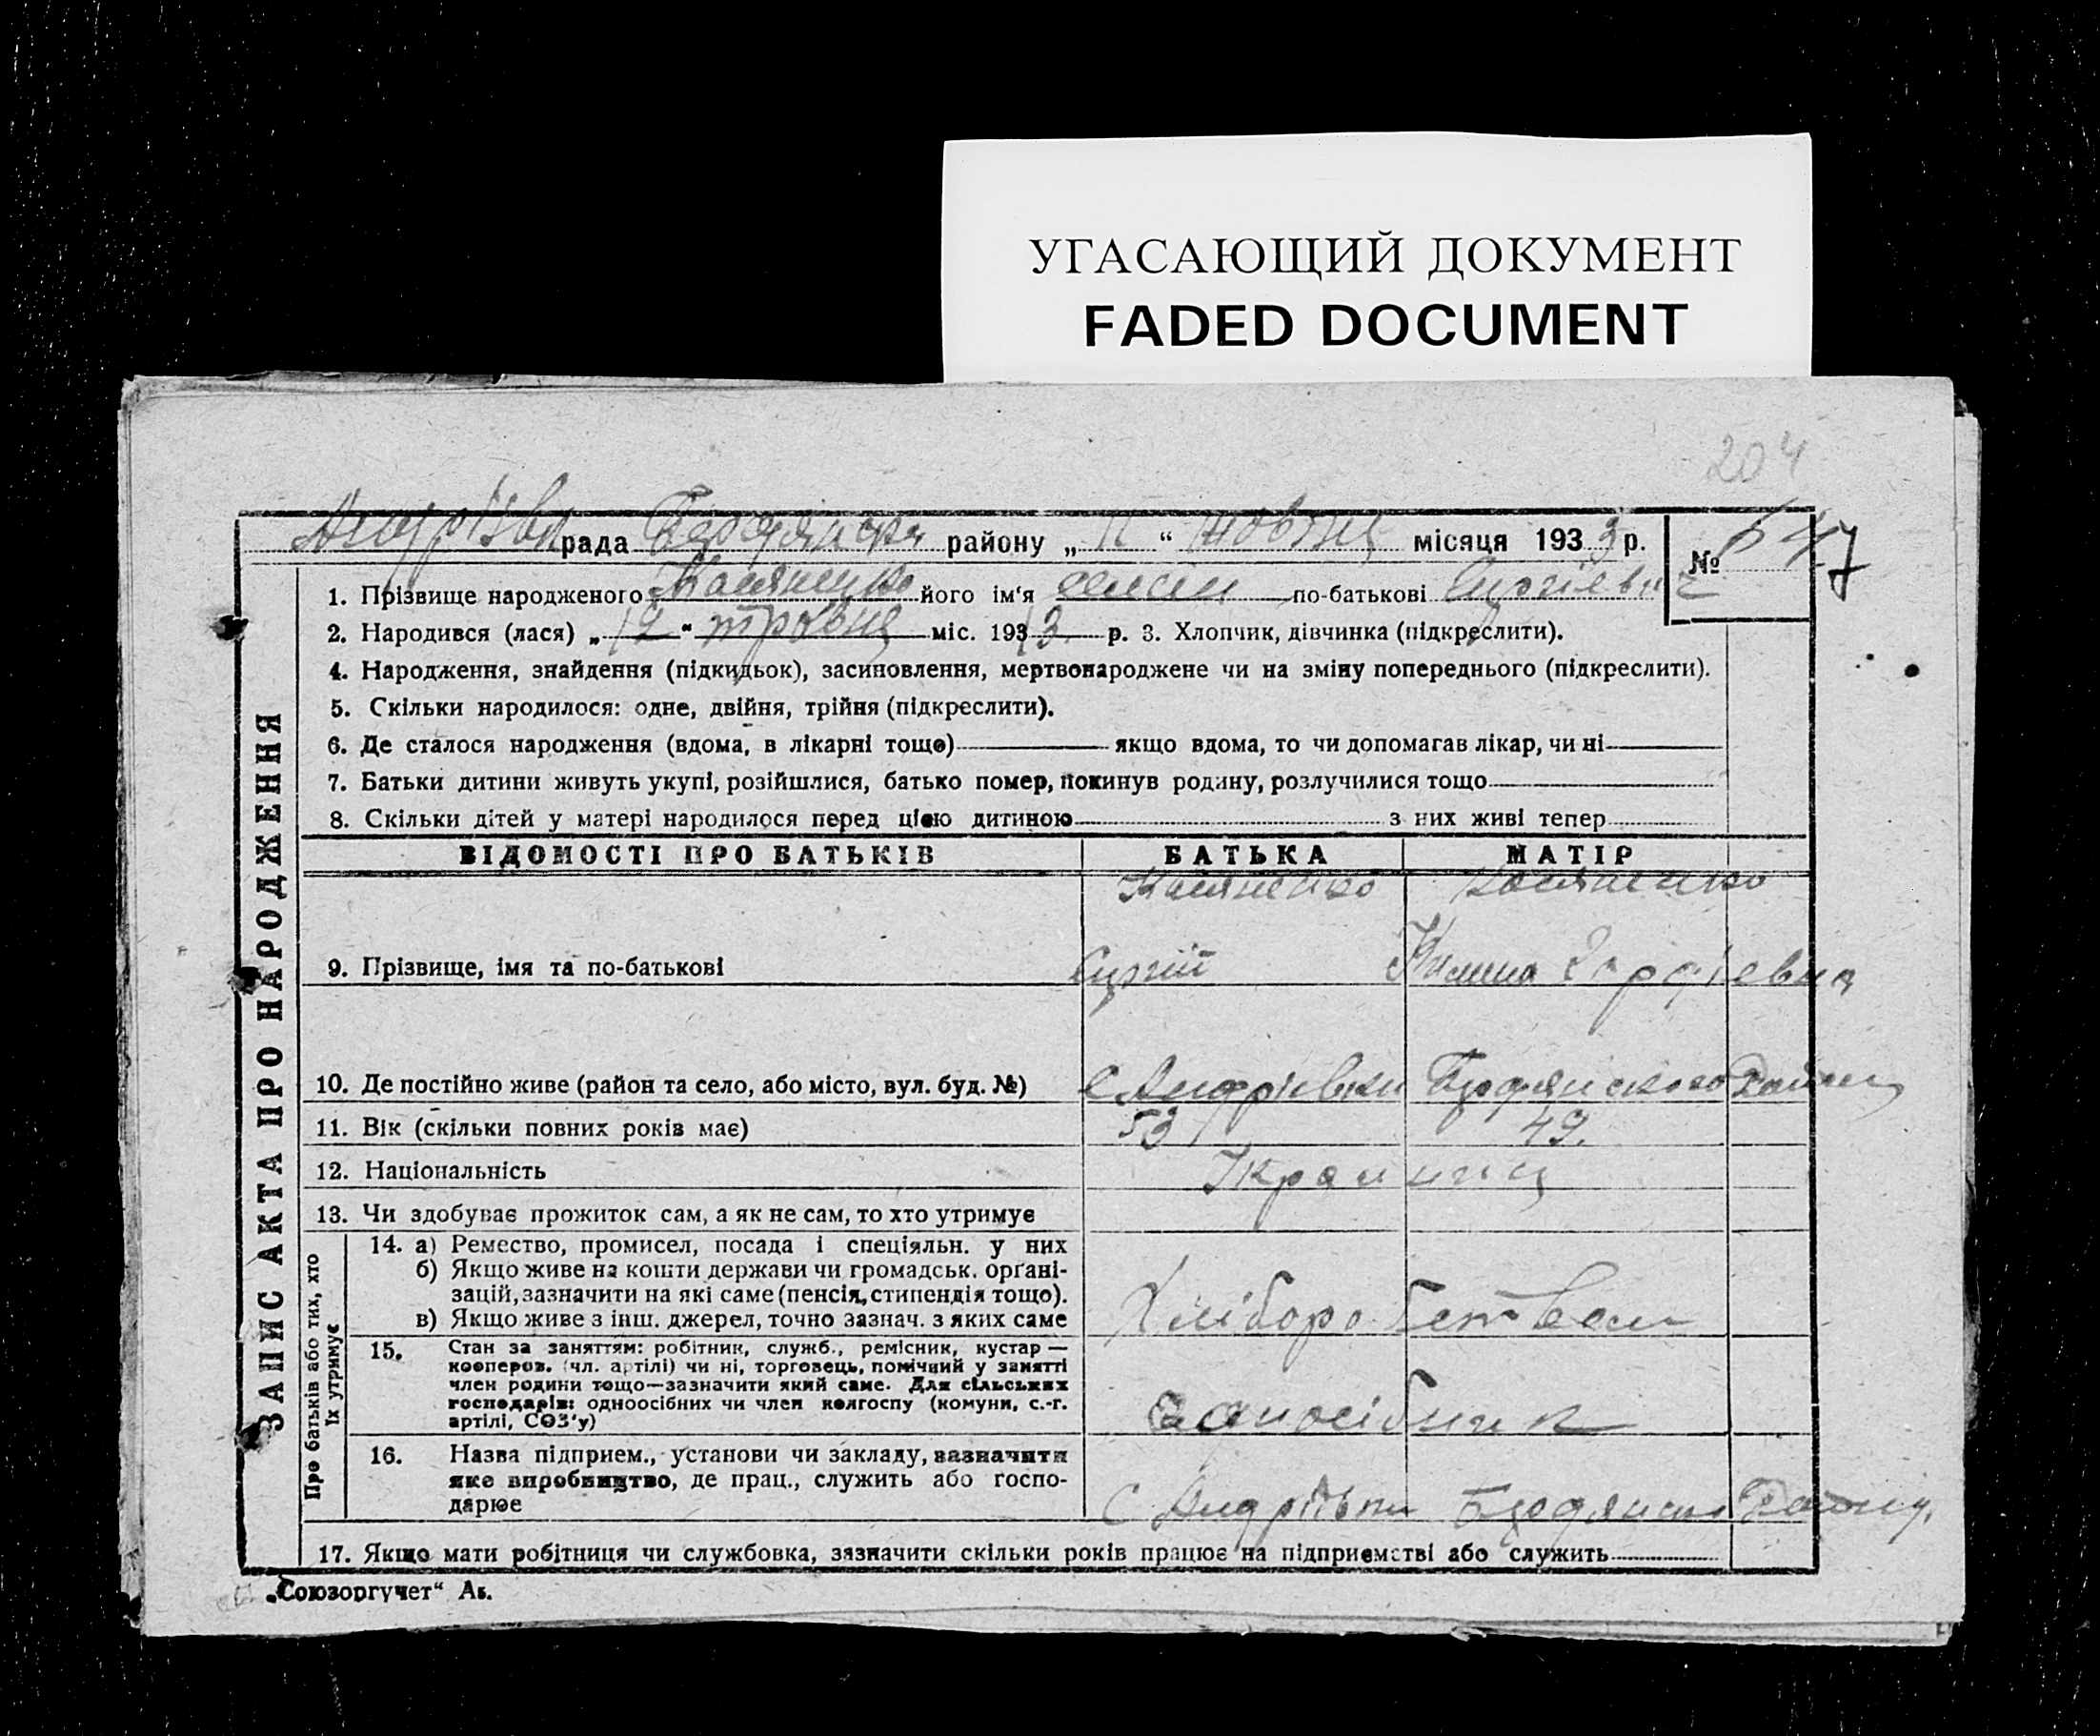 УГАСАЮЩИЙ ДОКУМЕНТ
FADED DOCUMENT
204
Андріївка рада Бердянськ району „ 11 “ жовтня місяця 1933 р.
№ 647
ЗАПИС АКТА ПРО НАРОДЖЕННЯ
1. Прізвище народженого Касяненко його ім'я по-батькові Сергієвич
2. Народився (лася) „ 12 “ травня міс. 1913 р. 3. Хлопчик, дівчинка (підкреслити).
4. Народження, знайдення (підкидьок), засиновлення, мертвонароджене чи на зміну попереднього (підкреслити).
5. Скільки народилося: одне, двійня, трійня (підкреслити).
6. Де сталося народження (вдома, в лікарні тощо) якщо вдома, то чи допомагав лікар, чи ні
7. Батьки дитини живуть укупі, розійшлися, батько помер, покинув родину, розлучилися тощо
8. Скільки дітей у матері народилося перед цією дитиною з них живі тепер
ВІДОМОСТІ ПРО БАТЬКІВ БАТЬКА МАТІР
Касяненко Касяненко
9. Прізвище, імя та по-батькові Сергій Килина
10. Де постійно живе (район та село, або місто, вул. буд. №) с Андрієвки Бердянского Району
11. Вік (скільки повних років має) 53 49.
12. Національність Украинц
13. Чи здобуває прожиток сам, а як не сам, то хто утримує
Про батьків або тих, хто їх утримує
14. а) Ремество, промисел, посада і спеціяльн. у них
б) Якщо живе на кошти держави чи громадськ. органі-
зацій, зазначити на які саме (пенсія, стипендія тощо).
в) Якщо живе з інш. джерел, точно зазнач. з яких саме
Хліборобством
15. Стан за заняттям: робітник, служб., ремісник, кустар —
кооперов. (чл. артілі) чи ні, торговець, помічний у занятті
член родини тощо—зазначити який саме. Для сільських
господарів: одноосібних чи член колгоспу (комуни, с.-г.
артілі, СОЗ'у)
одноосібник
16. Назва підприєм., установи чи закладу, зазначити
яке виробництво, де прац., служить або госпо-
дарює
с Андріївки Бердянск Району.
17. Якщо мати робітниця чи службовка, зазначити скільки років працює на підприємстві або служить
„Союзоргучет“ Ак.